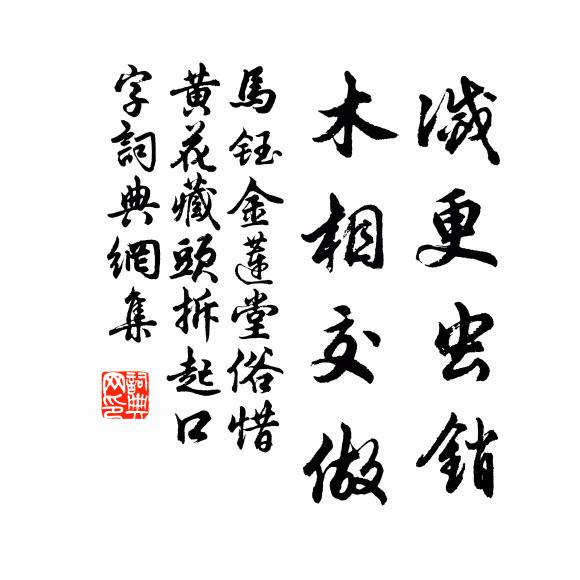 滅更虫銷
木相交做
馬鈺金蓮堂俗惜
黃花藏頭拆起口
字詞典網集
詞典網印